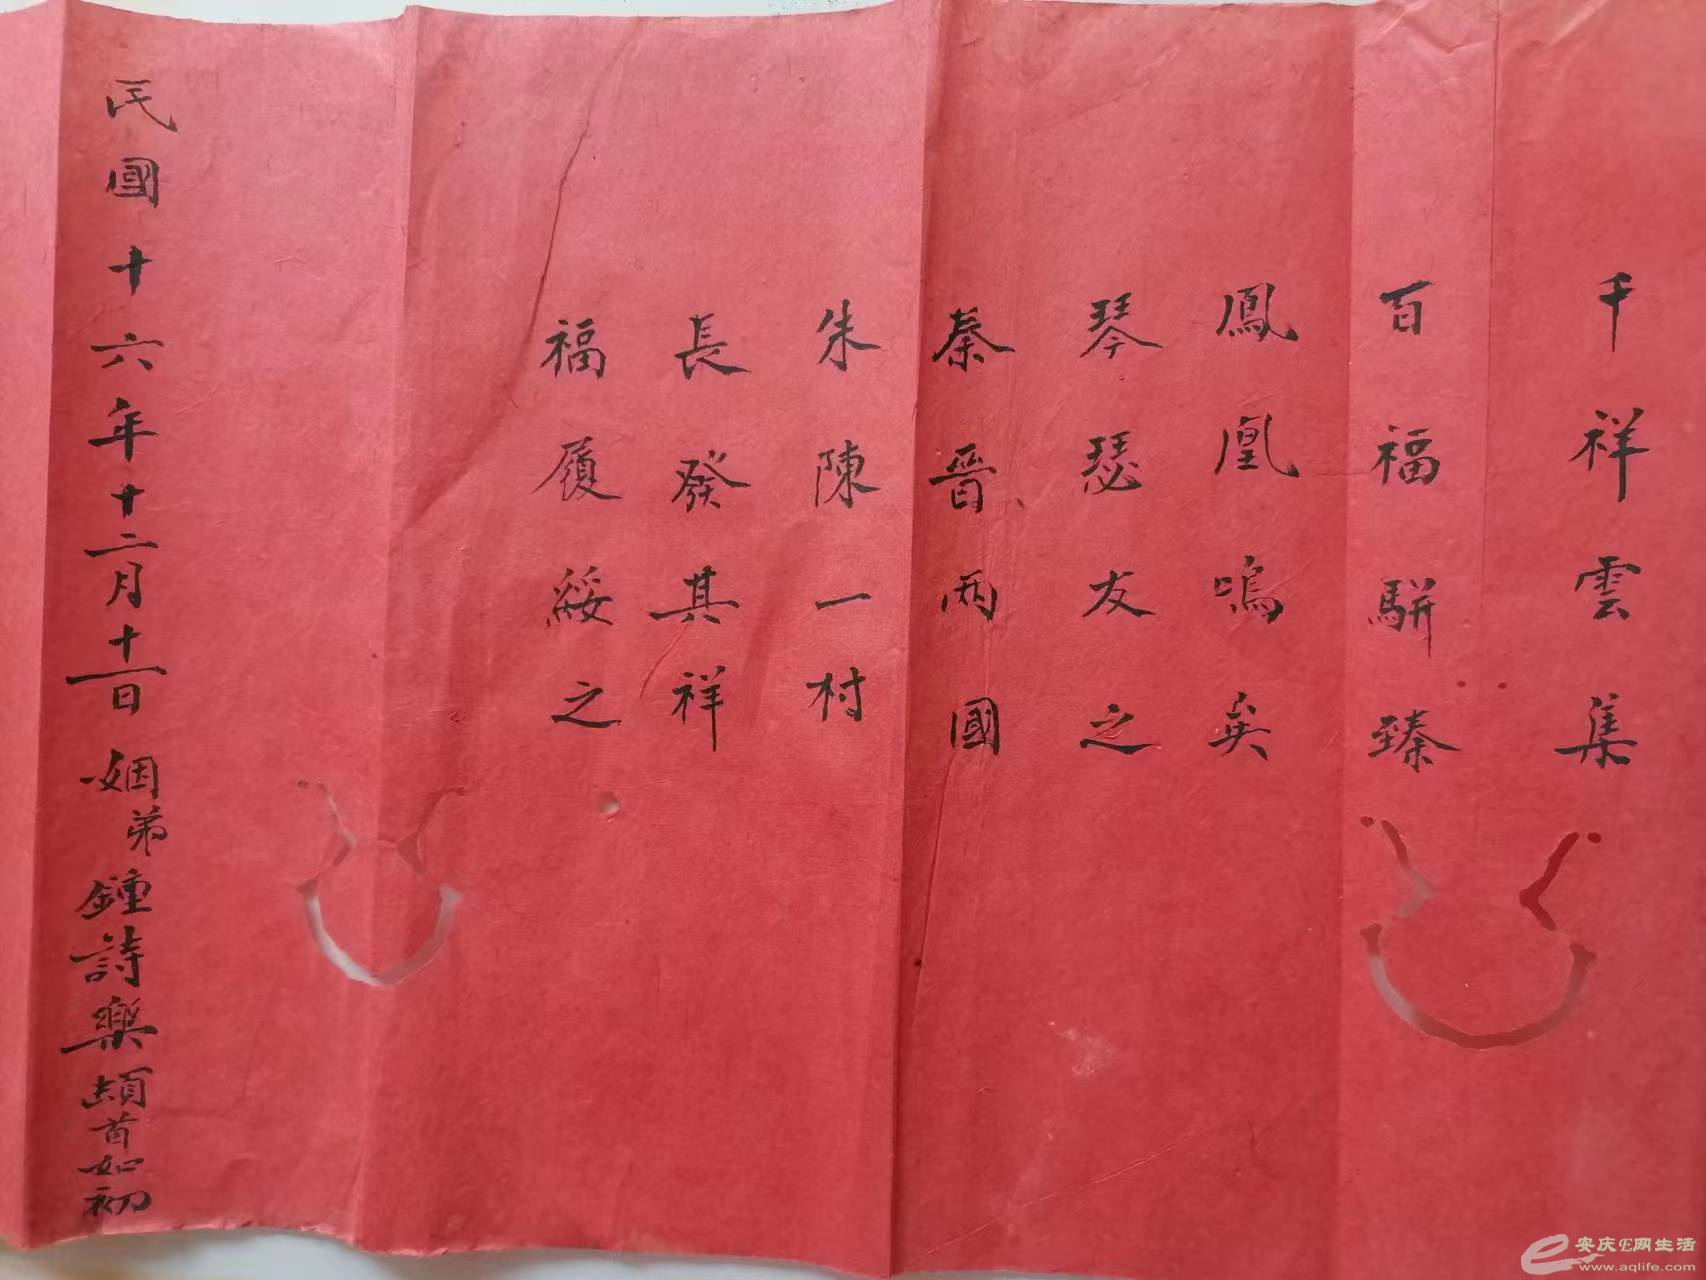 千祥雲集
百福駢臻
鳳凰鳴矣
琴瑟友之
秦晉兩國
朱陳一村
長發其祥
福履綏之
民國十六年十二月十一日 姻弟鍾詩樂頓首如初
安庆E网生活
www.aqlife.com